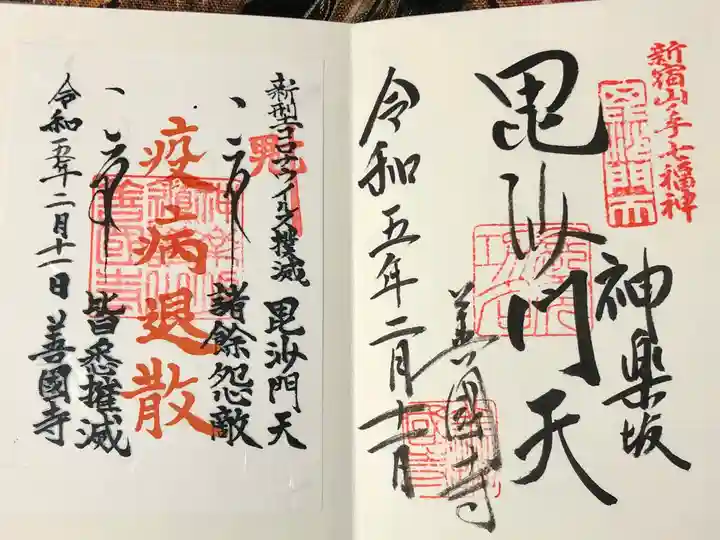 新宿山ノ手七福神
神楽坂
毘沙門天
善國寺
令和五年二月十一日
新型コロナウイルス撲滅
毘沙門天
諸餘怨敵
疫病退散
皆悉摧滅
令和五年二月十一日
善國寺